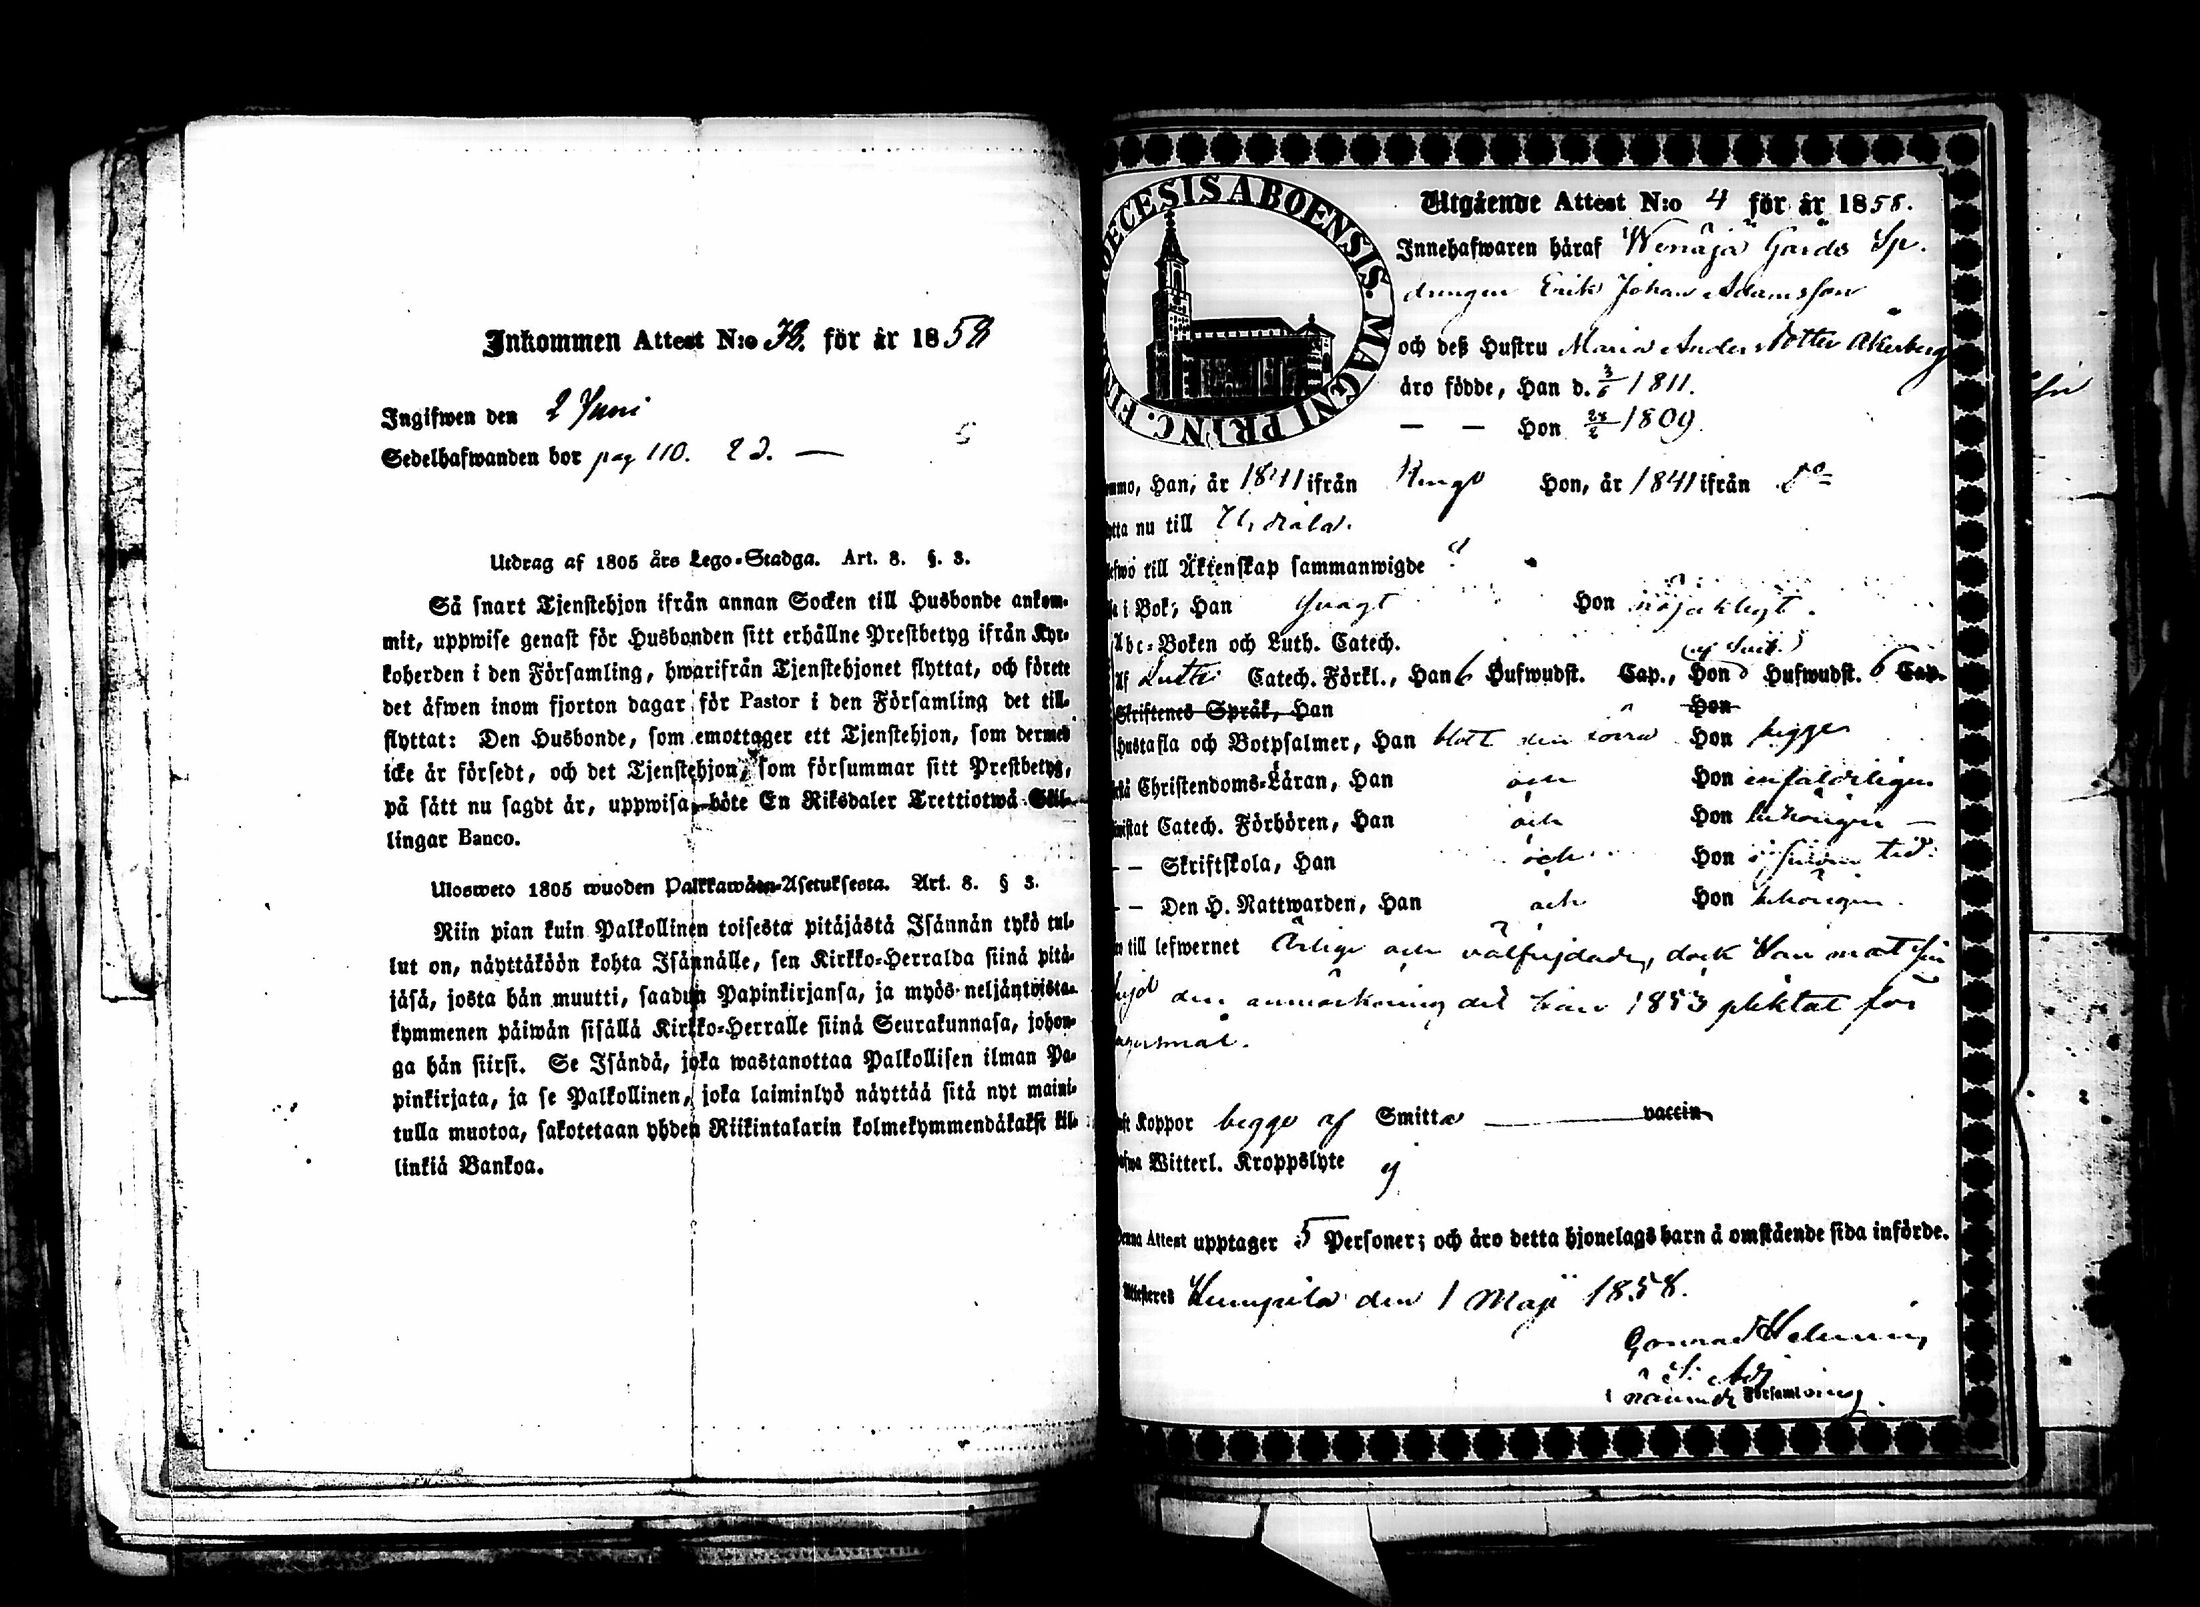 Inkommen Attest N:o 38. för år 1858
Ingifwen den 2 Juni
Sedelhafwanden bor pag 110. 2d. —
Utdrag af 1805 års Lego-Stadga. Art. 8. §. 3.
Så snart Tjenstehjon ifrån annan Socken till Husbonde ankom-
mit, uppwise genast för Husbonden sitt erhållne Prestbetyg ifrån Kyr-
koherden i den Församling, hwarifrån Tjenstehjonet flyttat, och förete
det äfwen inom fjorton dagar för Pastor i den Församling det till-
flyttat: Den Husbonde, som emottager ett Tjenstehjon, som dermed
icke är försedt, och det Tjenstehjon, som försummar sitt Prestbetyg,
på sätt nu sagdt är, uppwisa, böte En Riksdaler Trettiotwå Skil-
lingar Banco.
Ulosweto 1805 wuoden Palkkawäen-Asetuksesta. Art. 8. § 3.
Niin pian kuin Palkollinen toisesta pitäjästä Isännän tykö tul-
lut on, näyttäköön kohta Isännälle, sen Kirkko-Herralda siinä pitä-
jäsä, josta hän muutti, saadun Papinkirjansa, ja myös neljäntoista-
kymmenen päiwän sisällä Kirkko-Herralle siinä Seurakunnasa, johon-
ga hän siirst. Se Isändä, joka wastanottaa Palkollisen ilman Pa-
pinkirjata, ja se Palkollinen, joka laiminlyö näyttää sitä nyt maini-
tulla muotoa, sakotetaan yhden Riikintalarin kolmekymmendäkaksi kil-
linkiä Bankoa.
DECESIS ABOENSIS. MAGNI PRINC. FIN
Utgående Attest N:o 4 för år 1858.
Innehafwaren häraf Gårds
drengen Erik Johan Adamsson
och deß Hustru Maria Andersdotter Åkerberg
äro födde, Han d. 3/6 1811.
— — Hon 28/2 1809.
Han, år 1841 ifrån Hon, år 1841 ifrån d:o
nu till Urdiala.
till Äktenskap sammanwigde
i Bok, Han svagt Hon nöjaktigt.
Abc-Boken och Luth. Catech.
Af Luth: Catech. Förkl., Han 6 Hufwudst. Cap., Hon Hufwudst. 6 Cap.
Skriftenes Språk, Han Hon
Hustafla och Botpsalmer, Han blott den Hon begge
Christendoms-Läran, Han och Hon enfaldeligen
Catech. Förhören, Han och Hon behörigen —
— — Skriftskola, Han och Hon i sinom tid.
— — Den H. Nattwarden, Han och Hon behörigen.
till lefwernet Ärlige och välfrejdade, dock Han mot sin
frejd den anmärkning det han 1853 pliktat för
Koppor begge af Smitta — vaccin
Witterl. Kroppslyte ej
Denna Attest upptager 5 Personer; och äro detta hjonelags barn å omstående sida införde.
Attesteres Humpila den 1 Maji 1858.
i nämnde Församling.